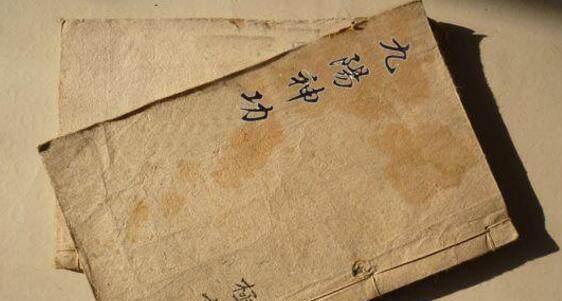 九陽神功